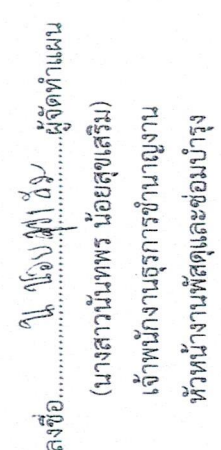 ลงชื่อ........................................ผู้จัดทำแผน
(นางสาวนันทพร น้อยสุขเสริม)
เจ้าพนักงานธุรการชำนาญงาน
หัวหน้างานพัสดุและซ่อมบำรุง